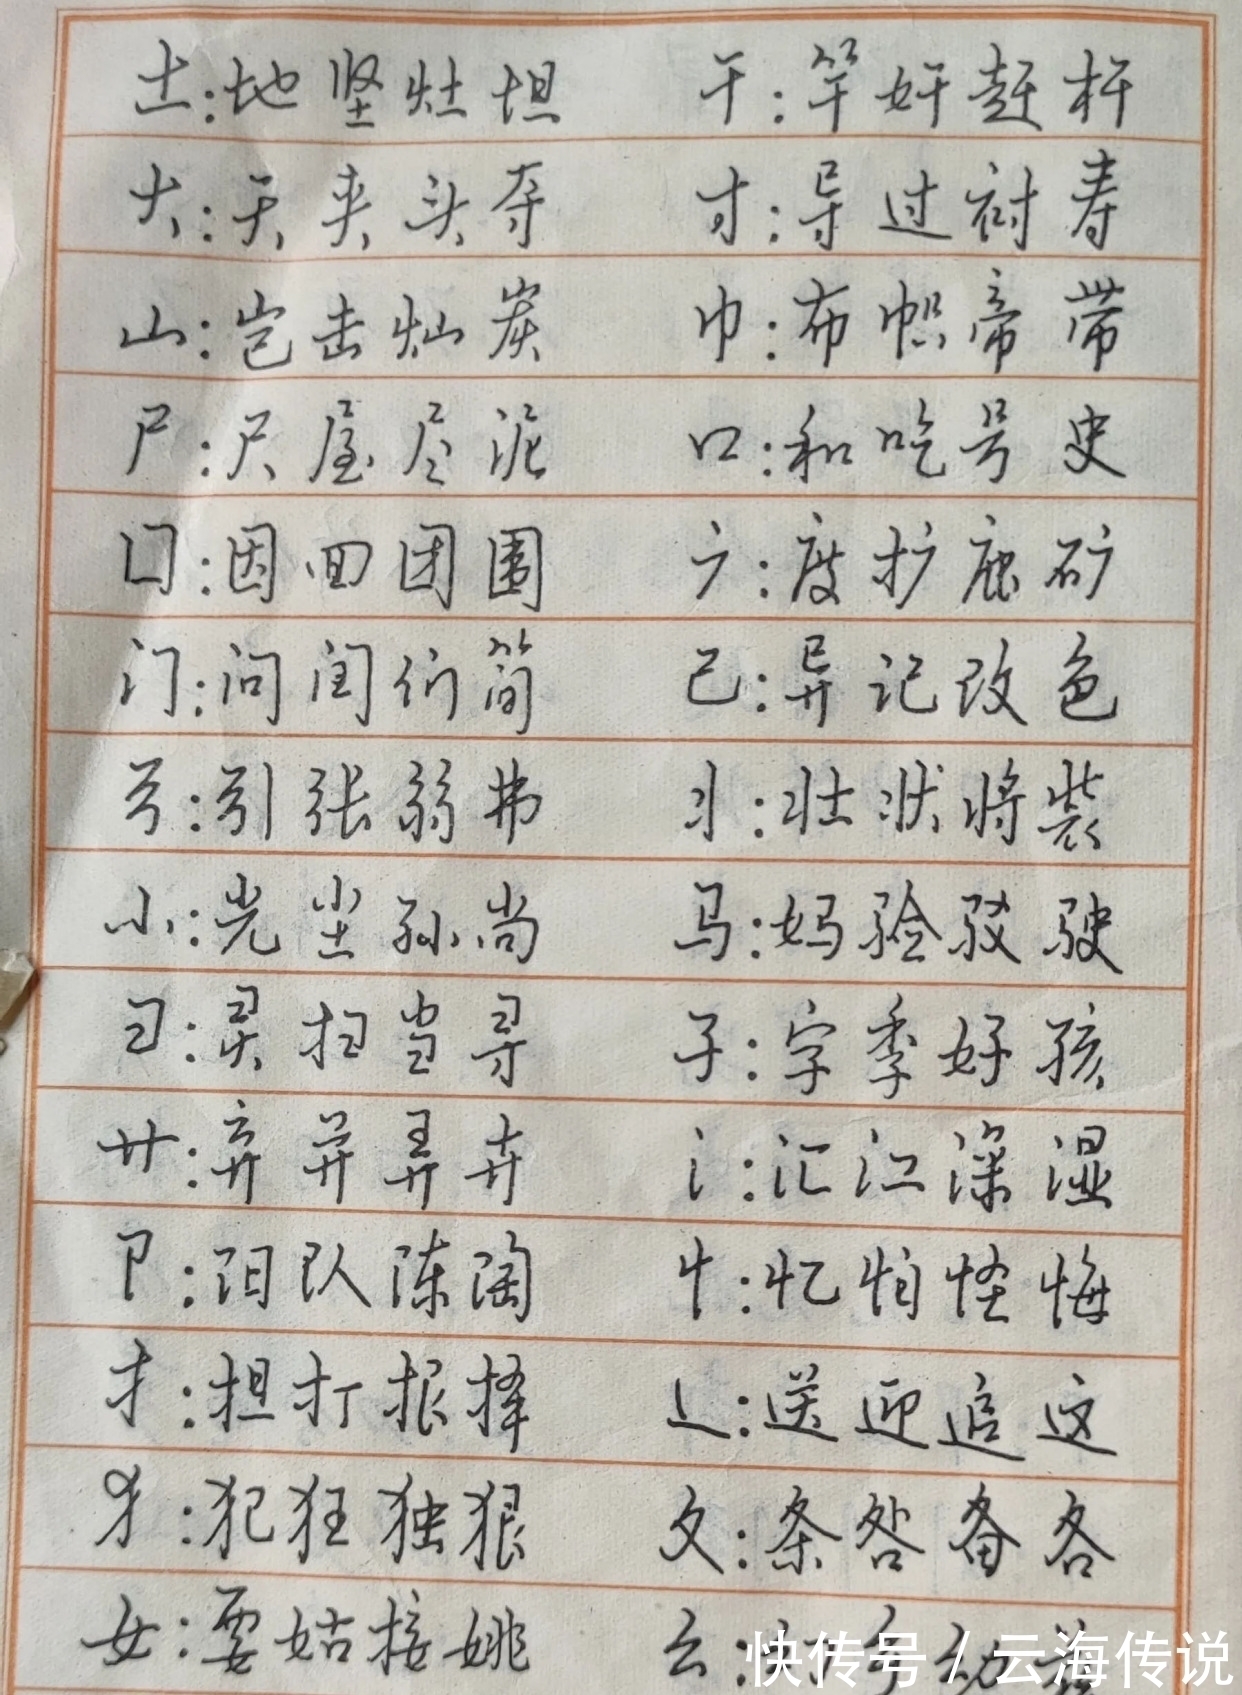 土:地坚灶坦 干:竿奸赶杆
大:天夹头夺 寸:导过衬寿
山:岂击灿炭 巾:布帜帝带
尸:尺屋尽泥 口:和吃号史
囗:因回团围 广:度扩庶矿
门:问闰们简 己:异记改色
弓:引张弱弗 丬:壮状将装
小:光尘孙尚 马:妈验驳驶
彐:灵扫当寻 子:字季好孩
廾:弃弄卉 氵:汇江深湿
阝:阳队陈陶 忄:忆怕怪悔
扌:担打根择 辶:送迎追这
犭:犯狂独狠 夂:条咎备各
女:要姑接姚 云:动
快传号/云海传说